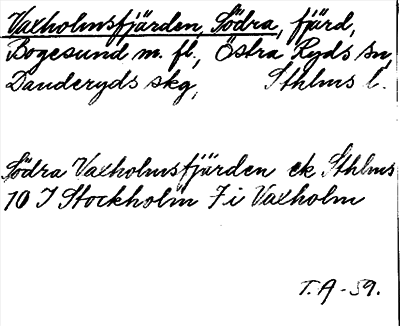 Vaxholmsfjärden, Södra, fjärd,
Bogesund m. fl., Östra Ryds sn,
Danderyds skg, Sthlms l.
Södra Vaxholmsfjärden ek Sthlms
10 I Stockholm 7 i Vaxholm
T. A - 59.